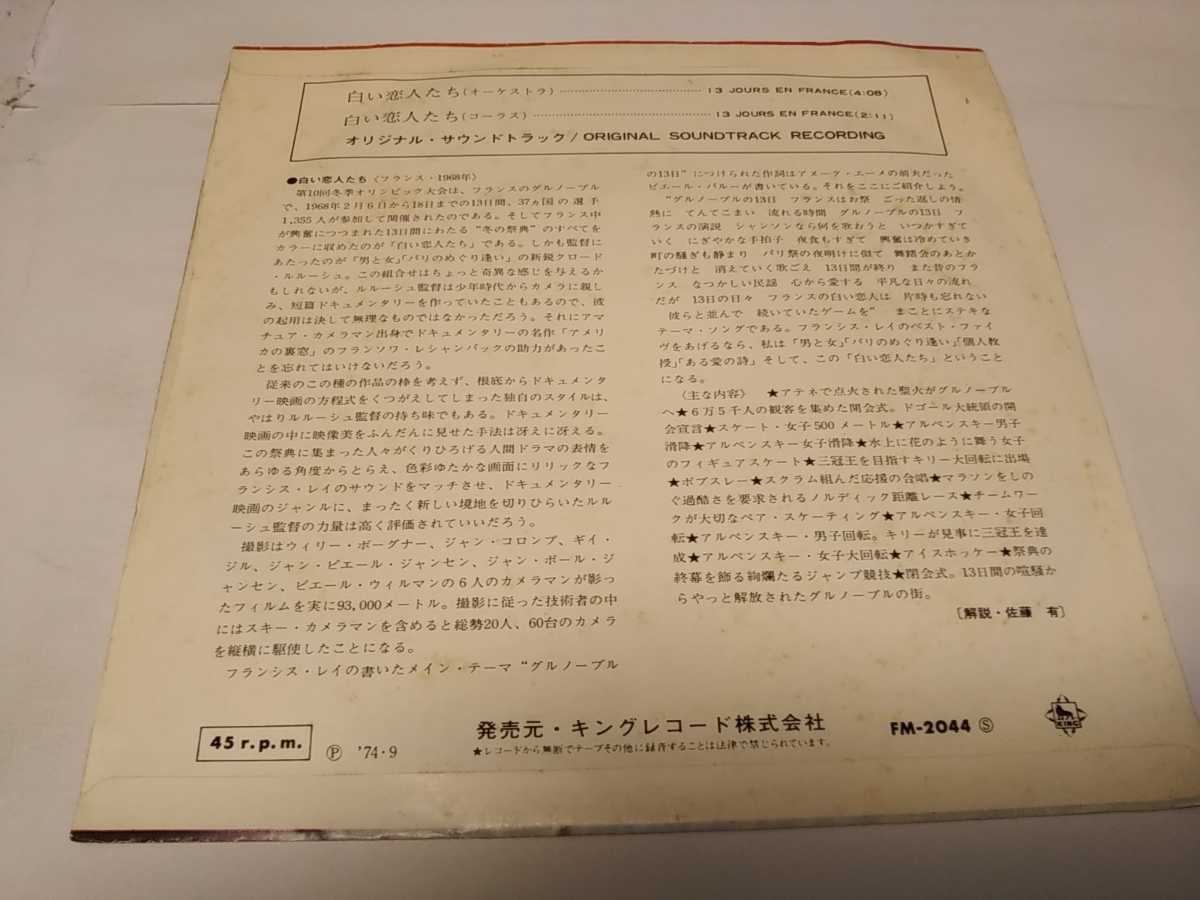 白い恋人たち(オーケストラ)……………………………………13 JOURS EN FRANCE(4:08)
白い恋人たち(コーラス)……………………………………13 JOURS EN FRANCE(2:11)
オリジナル・サウンドトラック/ORIGINAL SOUNDTRACK RECORDING
●白い恋人たち〈フランス・1968年〉
第10回冬季オリンピック大会は、フランスのグルノーブル
で、1968年2月6日から18日までの13日間、37ヵ国の選手
1,355人が参加して開催されたのである。そしてフランス中
が興奮につつまれた13日間にわたる“冬の祭典”のすべてを
カラーに収めたのが「白い恋人たち」である。しかも監督に
あたったのが「男と女」「パリのめぐり逢い」の新鋭クロード
・ルルーシュ。この組合せはちょっと奇異な感じを与えるか
もしれないが、ルルーシュ監督は少年時代からカメラに親し
み、短篇ドキュメンタリーを作っていたこともあるので、彼
の起用は決して無理なものではなかっただろう。それにアマ
チュア・カメラマン出身でドキュメンタリーの名作「アメリ
カの裏窓」のフランソワ・レシャンバックの助力があったこ
とを忘れてはいけないだろう。
従来のこの種の作品の枠を考えず、根底からドキュメンタ
リー映画の方程式をくつがえしてしまった独自のスタイルは、
やはりルルーシュ監督の持ち味でもある。ドキュメンタリー
映画の中に映像美をふんだんに見せた手法は冴えに冴える。
この祭典に集まった人々がくりひろげる人間ドラマの表情を
あらゆる角度からとらえ、色彩ゆたかな画面にリリックなフ
ランシス・レイのサウンドをマッチさせ、ドキュメンタリー
映画のジャンルに、まったく新しい境地を切りひらいたルル
ーシュ監督の力量は高く評価されていいだろう。
撮影はウィリー・ボーグナー、ジャン・コロンブ、ギイ・
ジル、ジャン・ピエール・ジャンセン、ジャン・ポール・ジ
ャンセン、ピエール・ウィルマンの6人のカメラマンが影っ
たフィルムを実に93,000メートル。撮影に従った技術者の中
にはスキー・カメラマンを含めると総勢20人、60台のカメラ
を縦横に駆使したことになる。
フランシス・レイの書いたメイン・テーマ“グルノーブル
の13日”につけられた作詞はアヌーク・エーメの前夫だった
ピエール・バルーが書いている。それをここにご紹介しよう。
“グルノーブルの13日 フランスはお祭 ごった返しの情
熱に てんてこまい 流れる時間 グルノーブルの13日 フ
ランスの演説 シャンソンなら何を歌おうと いつかすぎて
いく にぎやかな手拍子 夜食もすぎて 興奮は冷めていき
町の騒ぎも静まり パリ祭の夜明けに似て 舞踏会のあとか
たづけと 消えていく歌ごえ 13日間が終り また昔のフラ
ンス なつかしい民謡 心から愛する 平凡な日々の流れ
だが 13日の日々 フランスの白い恋人は 片時も忘れない
彼らと並んで 続いていたゲームを” まことにステキな
テーマ・ソングである。フランシス・レイのベスト・ファイ
ヴをあげるなら、私は「男と女」「パリのめぐり逢い」「個人教
授」「ある愛の詩」そして、この「白い恋人たち」ということ
になる。
〈主な内容〉 ★アテネで点火された聖火がグルノーブル
へ★6万5千人の観客を集めた開会式。ドゴール大統領の開
会宣言★スケート・女子500メートル★アルペンスキー男子
滑降★アルペンスキー女子滑降★氷上に花のように舞う女子
のフィギュアスケート★三冠王を目指すキリー大回転に出場
★ボブスレー★スクラム組んだ応援の合唱★マラソンをしの
ぐ過酷さを要求されるノルディック距離レース★チームワー
クが大切なペア・スケーティング★アルペンスキー・女子回
転★アルペンスキー・男子回転。キリーが見事に三冠王を達
成★アルペンスキー・女子大回転★アイスホッケー★祭典の
終幕を飾る絢爛たるジャンプ競技★閉会式。13日間の喧騒か
らやっと解放されたグルノーブルの街。
〔解説・佐藤 有〕
45 r.p.m.
Ⓟ '74・9
発売元・キングレコード株式会社
★レコードから無断でテープその他に録音することは法律で禁じられています。
FM-2044 Ⓢ
KING